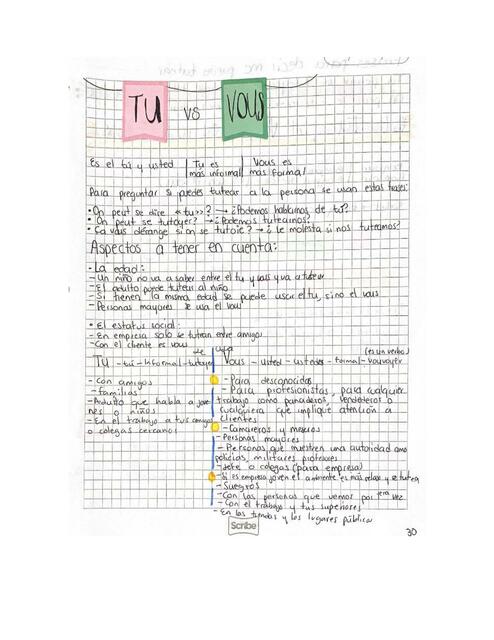 TU vs VOUS
Es el tú y usted | Tu es más informal | Vous es más formal
Para preguntar si puedes tutear a la persona se usan estas frases:
• On peut se dire «tu»? → ¿Podemos hablarnos de tú?
• On peut se tutoyer? → ¿Podemos tutearnos?
• Ça vous dérange si on se tutoie? → ¿Le molesta si nos tuteamos?
Aspectos a tener en cuenta:
• La edad:
- Un niño no va a saber entre el tu y vous y va a tutear
- El adulto puede tutear al niño
- Si tienen la misma edad se puede usar el tu, sino el vous
- Personas mayores se usa el vous
• El estatus social:
- En empresa solo se tutean entre amigos
- Con el cliente es vous
Tu - tú - Informal - tutoyer
- Con amigos
- familias
- Adulto que habla a jóve
nes o niños
- En el trabajo a tus amigos
o colegas cercanos
(es un verbo)
Vous - usted - ustedes - formal - vouvoyer
- Para desconocidos
- Para profesionistas, para cualquier
trabajo como panaderos, vendedores o
cualquiera que implique atención a
clientes
- Camareros y meseros
- Personas mayores
- Personas que muestren una autoridad como
policías, militares profesores
- Jefe o colegas (para empresa)
- Si es empresa joven el ambiente es más relax y se tutean
- Suegros
- Con las personas que vemos por 1era vez
- Con el trabajo y tus superiores
- En las tiendas y los lugares públicos
Scribe
30